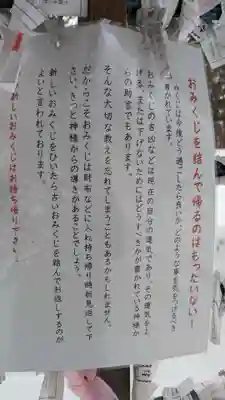 おみくじを結んで帰るのはもったいない！
おみくじは今後どう過ごしたら良いか、どのような事を気をつけるべき
か書かれています。
おみくじの吉凶などは現在の自分の運気であり、その運気を上
げる、または下げないためにはどうすべきかが書かれている神様か
らの助言でもあります。
そんな大切な教えを忘れてしまうこともあるかもしれません。
だからこそおみくじは財布などに入れ持ち帰り時折見返して下
さい。きっと神様からの導きがあることでしょう。
新しいおみくじをひいたら古いおみくじを結んでお返しするのが
よいと言われております。
新しいおみくじはお持ち帰り下さい。